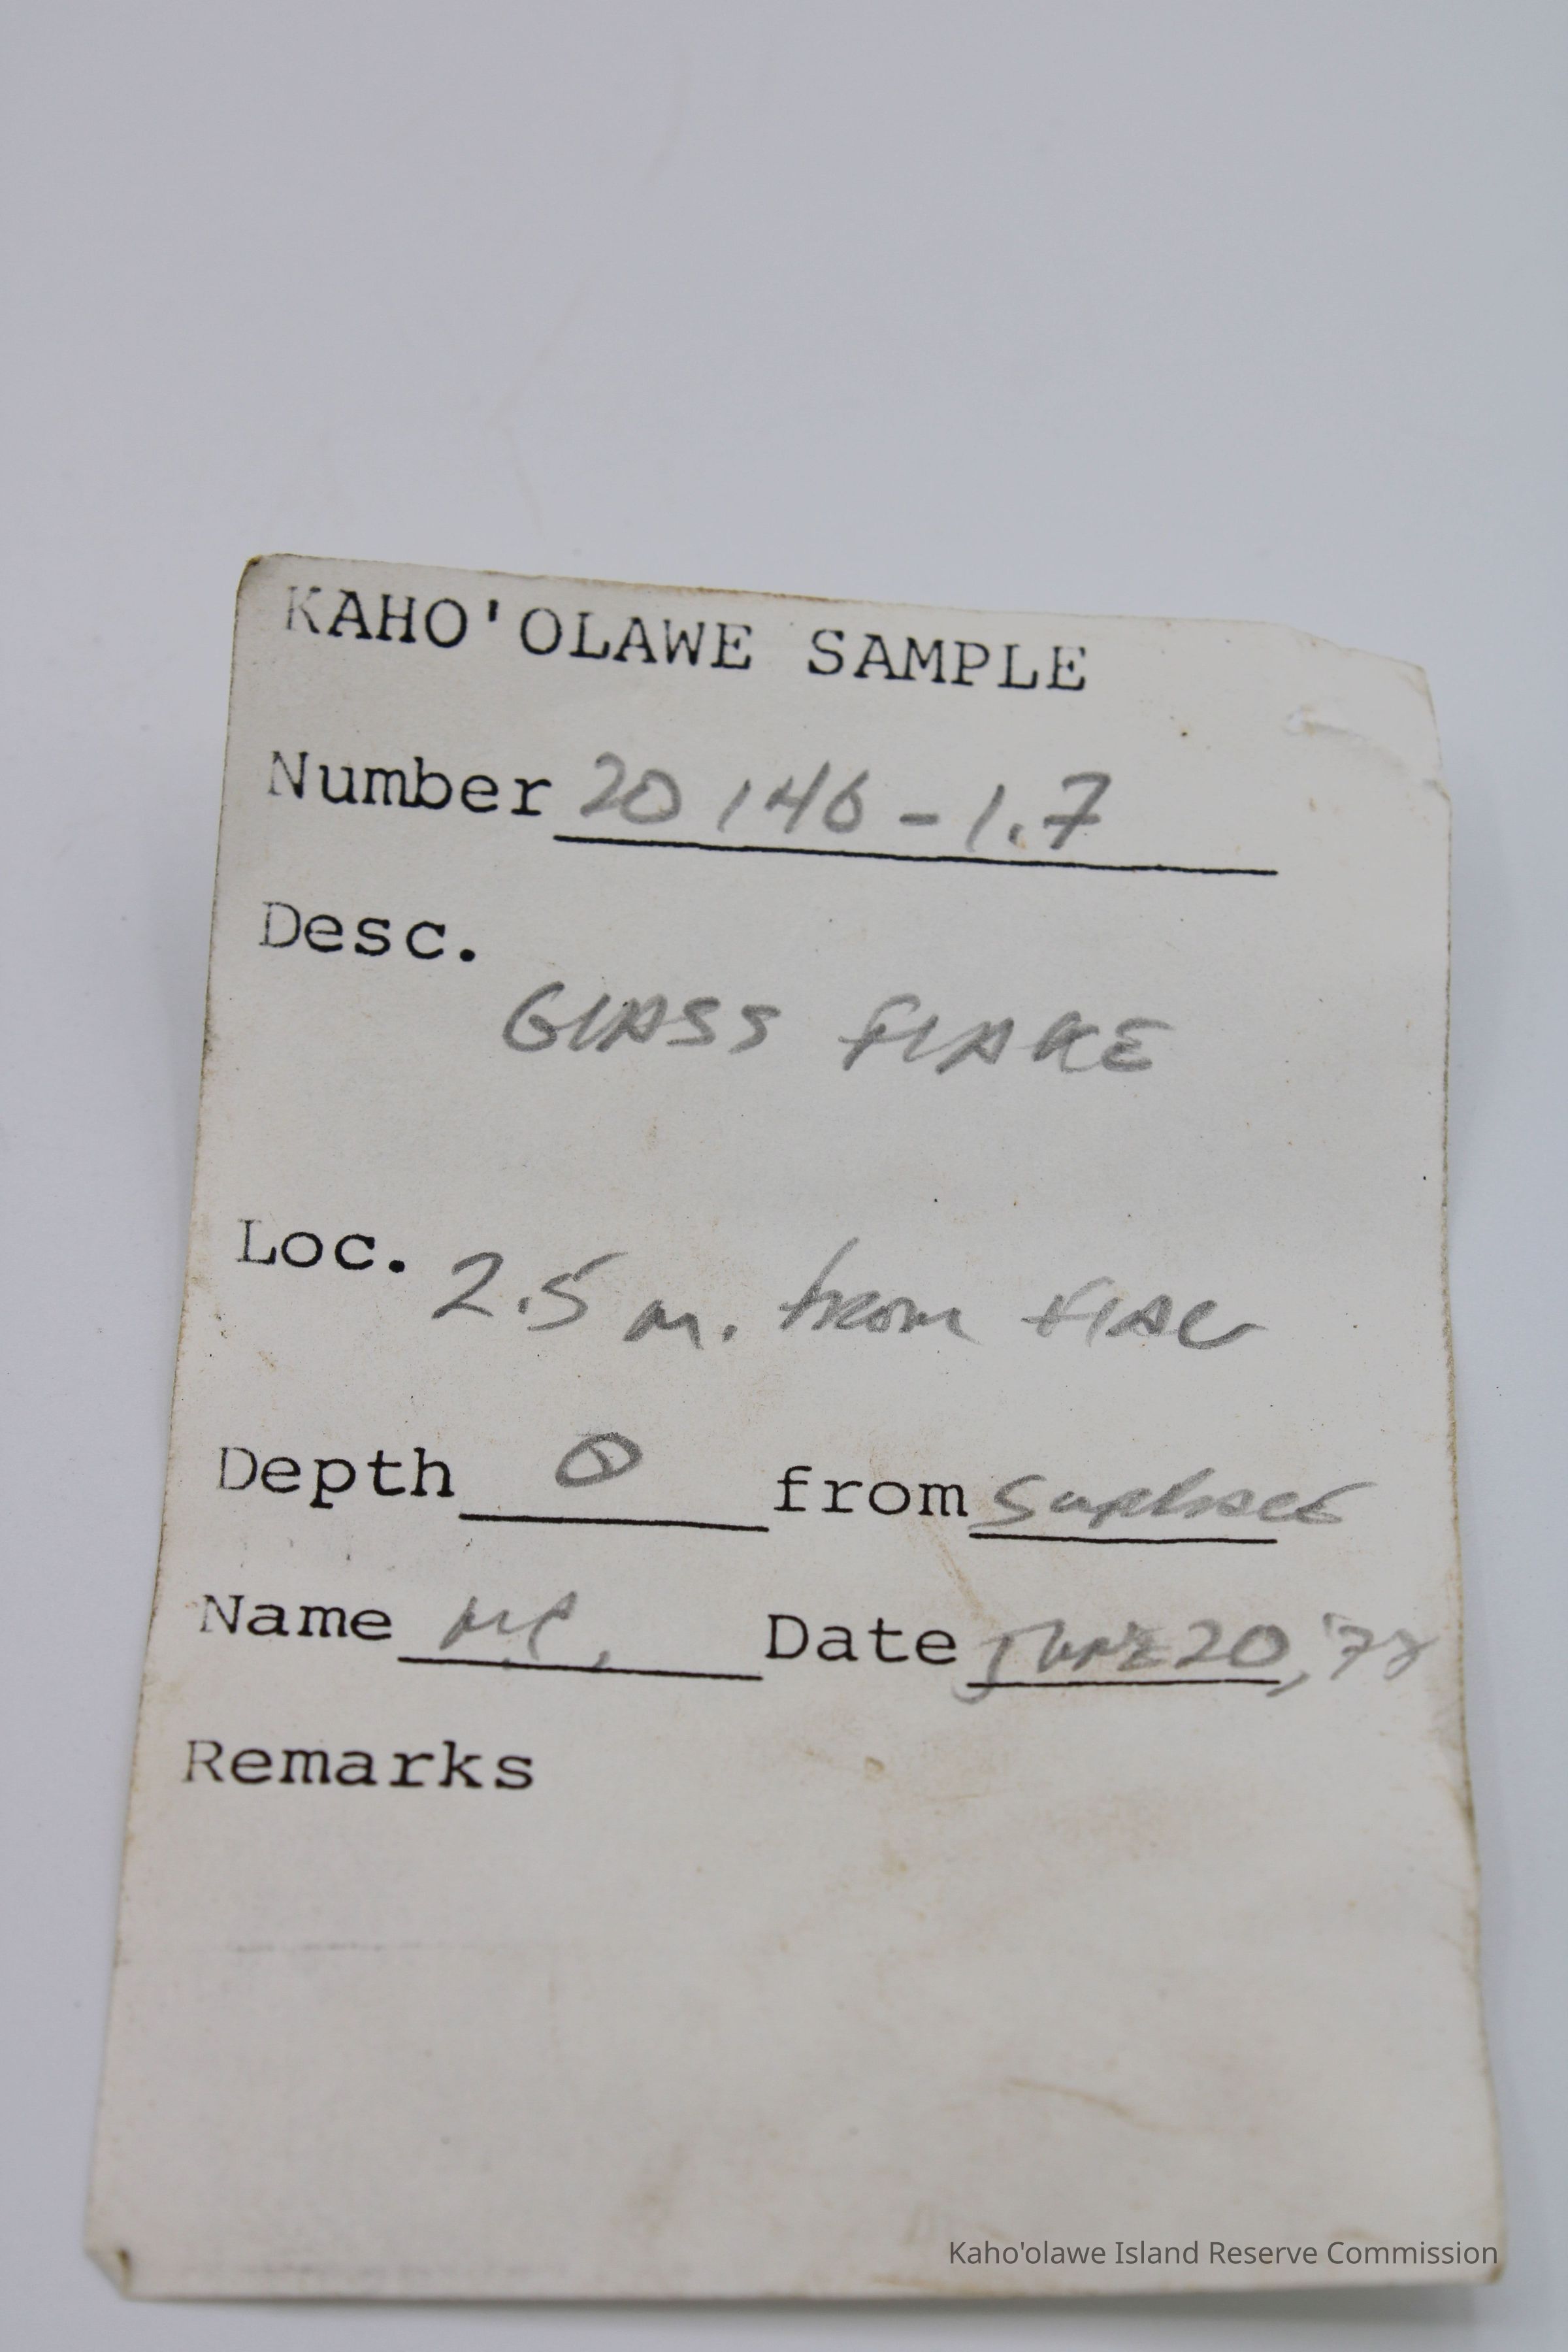 KAHO'OLAWE SAMPLE
Number 20 146-1.7
Desc.
GlASS FlAKE
Loc. 2.5 m. from FlAG
Depth 0 from SURFACE
Name Date JUNE 20, '78
Remarks
Kaho'olawe Island Reserve Commission